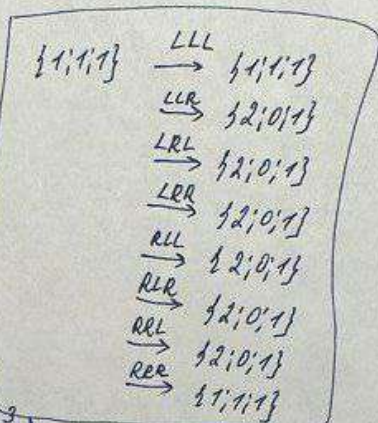 {1;1;1} LLL → {1;1;1}
LLR → {2;0;1}
LRL → {2;0;1}
LRR → {2;0;1}
RLL → {2;0;1}
RLR → {2;0;1}
RRL → {2;0;1}
RRR → {1;1;1}
3